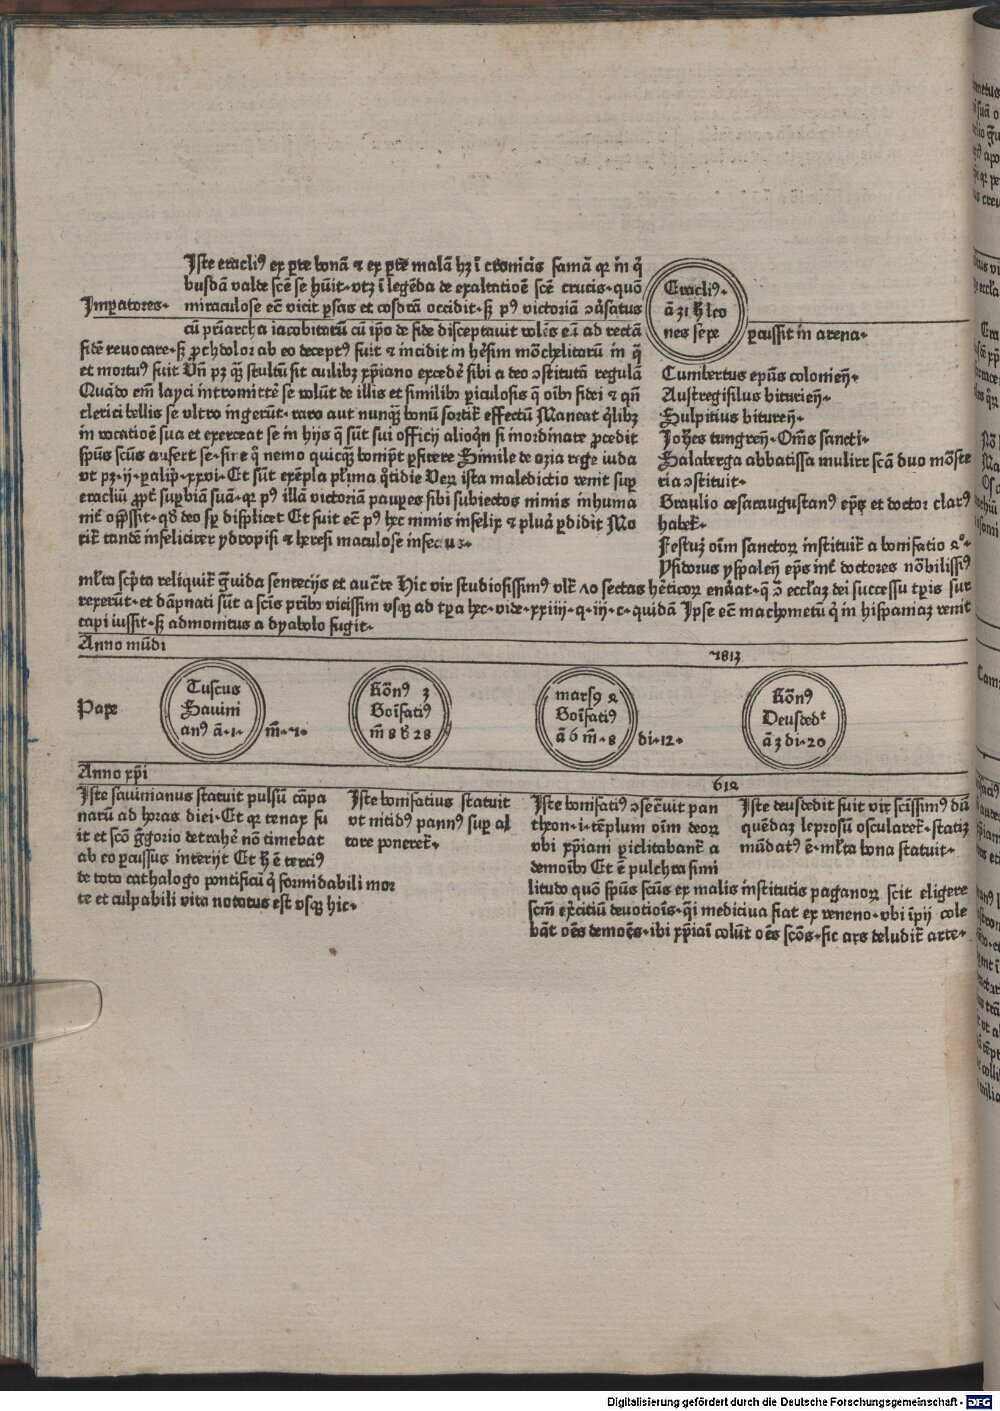 Iste eracliꝰ ex ꝑte bonã ⁊ ex ꝑte malã hꝫ ĩ cronicis famã qꝛ in q̃
busdã valde scẽ se hũit· vtꝫ ĩ legẽda de exaltatioẽ scẽ crucis· quõ
Imꝑatores· miraculose eẽ vicit ꝑsas et cosdrã occidit· sꝫ pꝰ victoriã ↄ̃ñsatus
cũ pr̃iarcha iacobitarũ cũ ip̃o de fide disceptauit volẽs eũ ad rectã
fidẽ reuocare· sꝫ ꝓch dolor ab eo deceptꝰ fuit ⁊ incidit in hẽsim mõchelitarũ in q̃
et mortuꝰ fuit Vñ pꝫ qꝙ̃ stultũ sit cuilibꝫ xp̃iano excedẽ sibi a deo ↄstitutã regulã
Quãdo em̃ layci intromittẽ se volũt de illis et similibꝫ ꝑiculosis q̃ oĩbꝫ fidei ⁊ qñ
clerici bellis se vltro ingerũt· raro aut nunqꝙ̃ bonũ sortit᷑ effectũ Maneat q̃libꝫ
in vocatioẽ sua et exerceat se in hijs q̃ sũt sui officij alioqñ si inordinate ꝓcedit
spũs scũs aufert se· sine q̃ nemo quicqꝙ̃ bom̃pt ꝑficere Simile de ozia rege iuda
vt pꝫ· ij· ꝑalip̃· xxvi· Et sũt exẽpla plr̃ima q̃tidie Veꝝ ista maledictio venit suꝑ
eracliũ ꝓpt᷑ suꝑbiã suã· qꝛ pꝰ illã victoriã pauꝑes sibi subiectos nimis inhuma
nit᷑ opp̃ssit· qꝙ deo sꝑ displicet Et fuit eẽ pꝰ hec nimis infelix ⁊ plura ꝑdidit Mo
rit᷑ tandẽ infeliciter ydropisi ⁊ heresi maculose infectꝰ·
Eracliꝰ·
ã 31 hꝫ leo
nes sepe ꝑcussit in arena·
Cumbertus epũs colonieñ·
Austregisilus biturieñ·
Sulpitius bitureñ·
Joh̃es tungreñ· Om̃s sancti·
Salaberga abbatissa mulier scã duo mõste
ria ↄstituit·
Braulio cesaraugustanꝰ ep̃s et doctor clarꝰ
habet᷑·
Festuꝫ oĩm sanctoꝝ instituit᷑ a bonifatio 4°·
Ysidorus yspaleñ ep̃s int᷑ doctores nõbilissiꝰ
ml̃ta sc̃pta reliquit q̃uida sentecijs et auc̃te Hic vir studiosissimꝰ vlt᷑ 70 sectas hẽticoꝝ enũat· q̃ ↄ̃ eccl̃aꝫ dei successu tp̃is sur
rexerũt· et dãpnati sũt a scĩs pr̃ibꝫ vicissim vsqꝫ ad tp̃a hec· vide· xxiiij· q· iij· c· quidã Ipse eẽ machometũ q̃ in hispaniaꝫ venit
capi iussit· sꝫ admonitus a dyabolo fugit·
Anno mũdi 7813
Pape
Tuscus
Sauini
anꝰ ã· 1· m̃· 7·
Bõnꝰ 3
Boĩfatiꝰ
m̃ 8 d̃ 28
marsꝰ 4
Boĩfatiꝰ
ã 6 m̃· 8 di· 12·
Bõnꝰ
Deusdedᵗ
ã 3 di· 20
Anno xp̃i 614
Iste sauinianus statuit pulsũ cãpa
narũ ad horas diei· Et qꝛ tenax fu
it et scõ g̃gorio detrahe᷑ nõ timebat
ab eo ꝑcussus interijt Et hꝫ ẽ terciꝰ
de toto cathalogo pontificũ q̃ formidabili mor
te et culpabili vita notatus est vsqꝫ hic·
Iste bonifatius statuit
vt nitidꝰ pannꝰ suꝑ al
tare poneret᷑·
Iste bonifatiꝰ ↄsecr̃uit pan
theon· i· tẽplum oĩm deoꝝ
vbi xp̃iani ꝑiclitabant᷑ a
demoĩbꝫ Et ẽ pulchra simi
litudo quõ spũs scũs ex malis institutis paganoꝝ scit eligere
scm̃ exẽcitiũ deuotiois· q̃i medicina fiat ex veneno· vbi ĩpij cole
bãt oẽs demoẽs· ibi xp̃iai colũt oẽs scõs· sic ars deludit᷑ arte·
Iste deusdedit fuit vir scĩssimꝰ dũ
quẽdaꝫ leprosũ oscularet᷑· statiꝫ
mũdatꝰ ẽ· ml̃ta bona statuit·
Digitalisierung gefördert durch die Deutsche Forschungsgemeinschaft - DFG